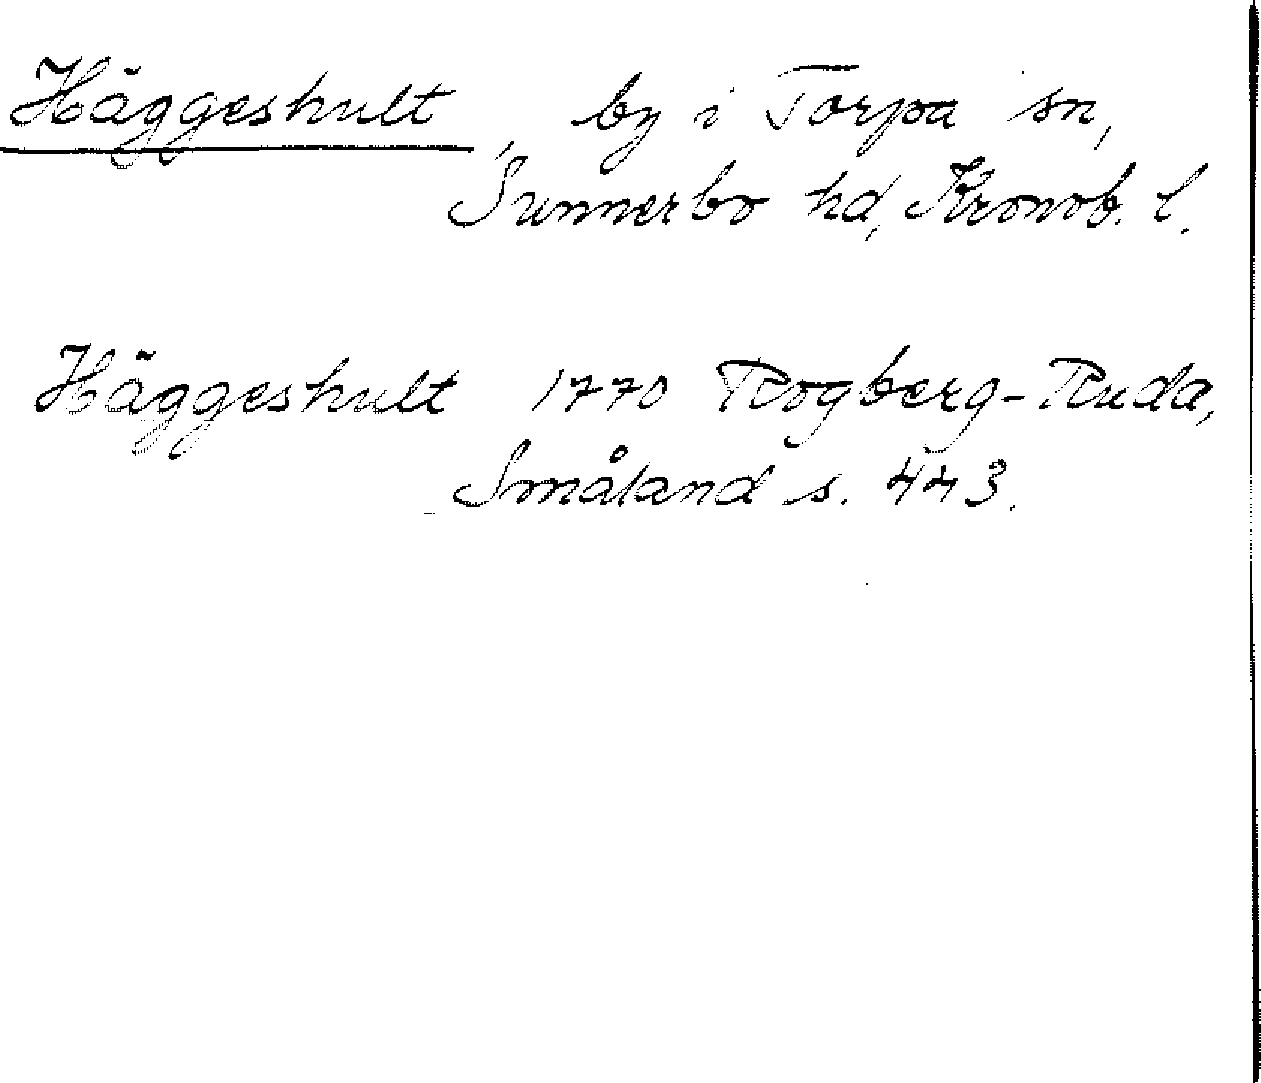 Häggeshult, by i Torpa sn,
Sunnerbo hd, Kronob. l.
Häggeshult 1770 Rogberg-Ruda,
Småland s. 443.